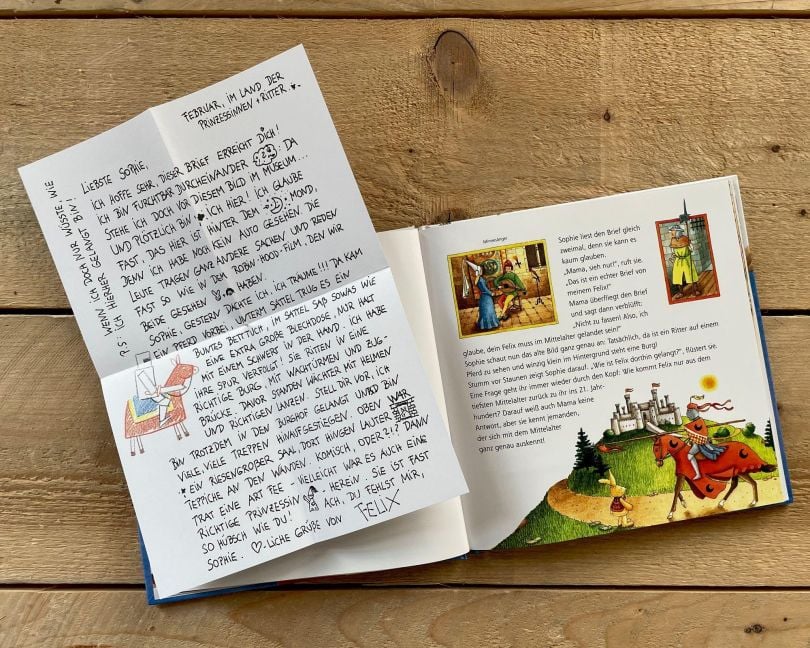 FEBRUAR, IM LAND DER
PRINZESSINNEN + RITTER
LIEBSTE SOPHIE,
ICH HOFFE SEHR, DIESER BRIEF ERREICHT DICH!
ICH BIN FURCHTBAR DURCHEINANDER : DA
STEHE ICH DOCH VOR DIESEM BILD IM MUSEUM...
UND PLÖTZLICH BIN ICH HIER! ICH GLAUBE
FAST, DAS HIER IST HINTER DEM MOND,
DENN ICH HABE NOCH KEIN AUTO GESEHEN. DIE
LEUTE TRAGEN GANZ ANDERE SACHEN UND REDEN
FAST SO WIE IN DEM ROBIN-HOOD-FILM, DEN WIR
BEIDE GESEHEN HABEN.
SOPHIE, GESTERN DACHTE ICH, ICH TRÄUME!!! DA KAM
EIN PFERD VORBEI, UNTERM SATTEL TRUG ES EIN
BUNTES BETTTUCH, IM SATTEL SAß SOWAS WIE
EINE EXTRA GROßE BLECHDOSE, NUR HALT
MIT EINEM SCHWERT IN DER HAND. ICH HABE
IHRE SPUR VERFOLGT! SIE RITTEN IN EINE
RICHTIGE BURG, MIT WACHTÜRMEN UND ZUG-
BRÜCKE, DAVOR STANDEN WÄCHTER MIT HELMEN
UND RICHTIGEN LANZEN. STELL DIR VOR, ICH
BIN TROTZDEM IN DEN BURGHOF GELANGT UND BIN
VIELE, VIELE TREPPEN HINAUFGESTIEGEN. OBEN WAR
EIN RIESENGROßER SAAL, DORT HINGEN LAUTER
TEPPICHE AN DEN WÄNDEN. KOMISCH, ODER?!? DANN
TRAT EINE ART FEE - VIELLEICHT WAR ES AUCH EINE
RICHTIGE PRINZESSIN - HEREIN. SIE IST FAST
SO HÜBSCH WIE DU! ACH, DU FEHLST MIR,
SOPHIE. ♡-LICHE GRÜßE VON FELIX
P.S.: WENN ICH DOCH NUR WÜSSTE, WIE
ICH HIERHER GELANGT BIN!
Minnesänger
Sophie liest den Brief gleich
zweimal, denn sie kann es
kaum glauben.
„Mama, sieh nur!", ruft sie.
„Das ist ein echter Brief von
meinem Felix!"
Mama überfliegt den Brief
und sagt dann verblüfft:
„Nicht zu fassen! Also, ich
glaube, dein Felix muss im Mittelalter gelandet sein!"
Sophie schaut nun das alte Bild ganz genau an: Tatsächlich, da ist ein Ritter auf einem
Pferd zu sehen und winzig klein im Hintergrund steht eine Burg!
Stumm vor Staunen zeigt Sophie darauf. „Wie ist Felix dorthin gelangt?", flüstert sie.
Eine Frage geht ihr immer wieder durch den Kopf: Wie kommt Felix nur aus dem
tiefsten Mittelalter zurück zu ihr ins 21. Jahr-
hundert? Darauf weiß auch Mama keine
Antwort, aber sie kennt jemanden,
der sich mit dem Mittelalter
ganz genau auskennt!